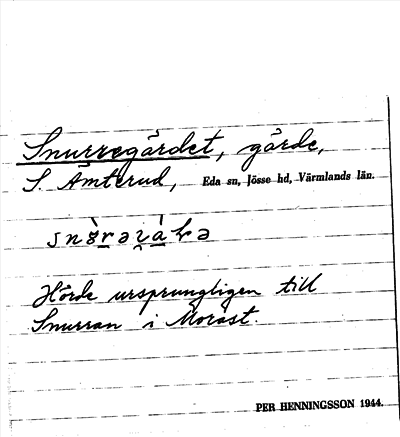 Snurregärdet, gärde,
S. Åmterud, Eda sn, Jösse hd, Värmlands län.
Hörde ursprungligen till
Snurran i Morast.
PER HENNINGSSON 1944.